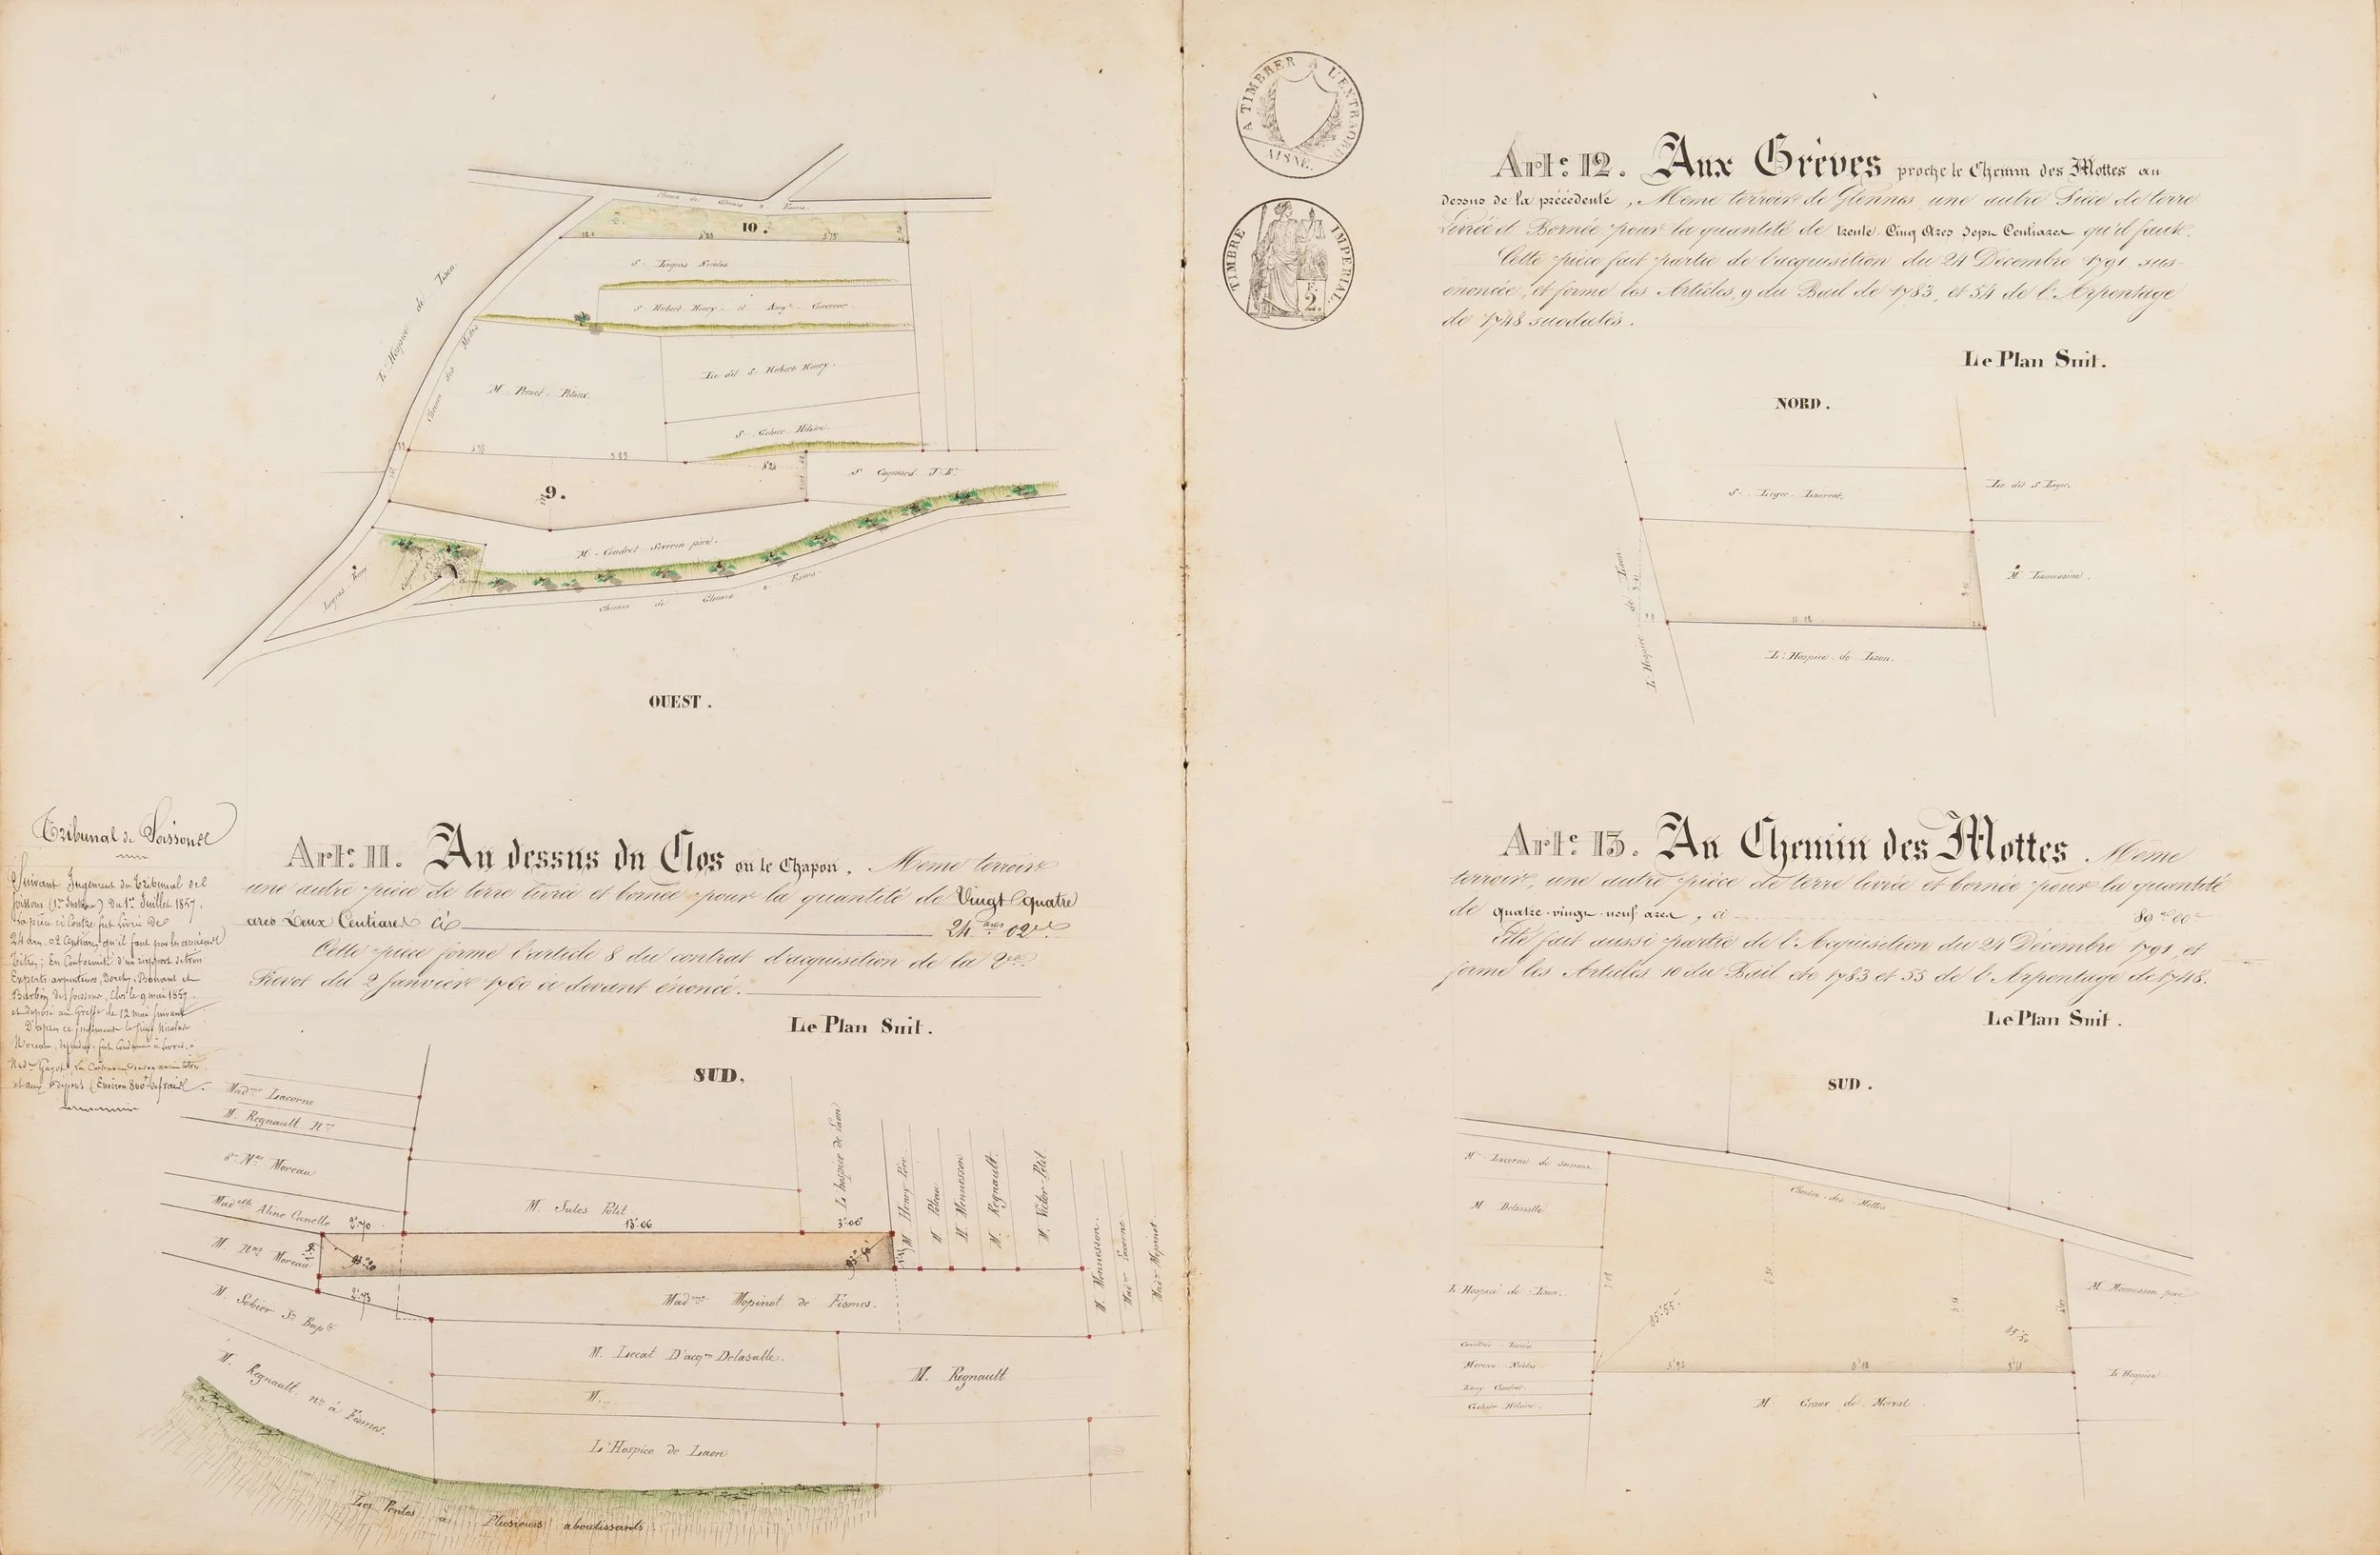 Chemin de Glennes à Fismes.
10.
S. Legros Nicolas
S. Hubert Henry et Aug.
L'Hospice de Laon.
Chemin des Mottes
M. Pinot
Le dit S. Hubert Henry.
S. Gohier Hilaire.
9.
S. Cagniard J. Bte
M. Coudret Severin père.
Chemin de Glennes à Fismes.
OUEST.
Tribunal de Soissons
Suivant Jugement du Tribunal de
Soissons (1re Instce) du 1er Juillet 1857,
la pièce ci contre fut livrée de
24 ares, 02 Centiares qu'il faut par les anciens
titres; En Conformité d'un rapport de trois
Experts arpenteurs,
de Soissons, Clos le 9 mai 1857
et déposé au Greffe le 12 mai suivant
D'après ce jugement le Sieur Nicolas
Moreau, fut Condamné à livrer, à
et aux dépens (Environ 800f de frais).
Arte. 11. Au dessus du Clos ou le Chapon. Même terroir
une autre pièce de terre livrée et bornée pour la quantité de Vingt quatre
ares Deux Centiares Ci 24 ares 02 cs
Cette pièce forme l'article 8 du contrat d'acquisition de la Ve
Prevot du 2 Janvier 1760 ci devant énoncé.
Le Plan Suit.
SUD.
Madme Lacorne
M. Regnault
Sr Nas Moreau
Madelle Aline Canelle
M. Nas Moreau
M. Gohier Jn Bapte
M. Regnault nre à Fismes.
M. Jules Petit
2.70
13.06
3.06
L'hospice de Laon
M. Henry Père
M. Poteau
M. Monnesson
M. Regnault.
M. Victor Petit
M. Monnesson.
Madme Lacorne.
Madme Mopinot.
Madme Mopinot de Fismes.
M. Lecat D'acqon Delasalle.
M...
M. Regnault
L'Hospice de Laon
Les Pentes à Plusieurs aboutissants
A TIMBRER A L'EXTRAORD.
AISNE.
TIMBRE IMPERIAL.
F.
2.
Arte. 12. Aux Grèves proche le Chemin des Mottes au
dessus de la précédente, Même terroir de Glennes une autre Pièce de terre
Livrée et Bornée pour la quantité de trente Cinq Ares Sept Centiares qu'il faut.
Cette pièce fait partie de l'acquisition du 24 Décembre 1791 sus-
énoncée, et forme les Articles 9 du Bail de 1783, et 54 de l'Arpentage
de 1748 susdatés.
Le Plan Suit.
NORD.
S. Leger Laurent.
Le dit S. Leger.
L'Hospice de Laon.
L'Hospice de Laon.
Arte. 13. Au Chemin des Mottes. Même
terroir, une autre pièce de terre livrée et bornée pour la quantité
de quatre-vingt-neuf ares, ci 89 as 00 c
Elle fait aussi partie de l'Acquisition du 24 Décembre 1791, et
forme les Articles 10 du Bail de 1783 et 55 de l'Arpentage de 1748.
Le Plan Suit.
SUD.
M. Lacorne de Soissons
Chemin des Mottes
M. Delassalle
L'Hospice de Laon.
M. Monnesson père
Moreau Nicolas
Gohier Hilaire.
L'Hospice
M. Graux de Merval